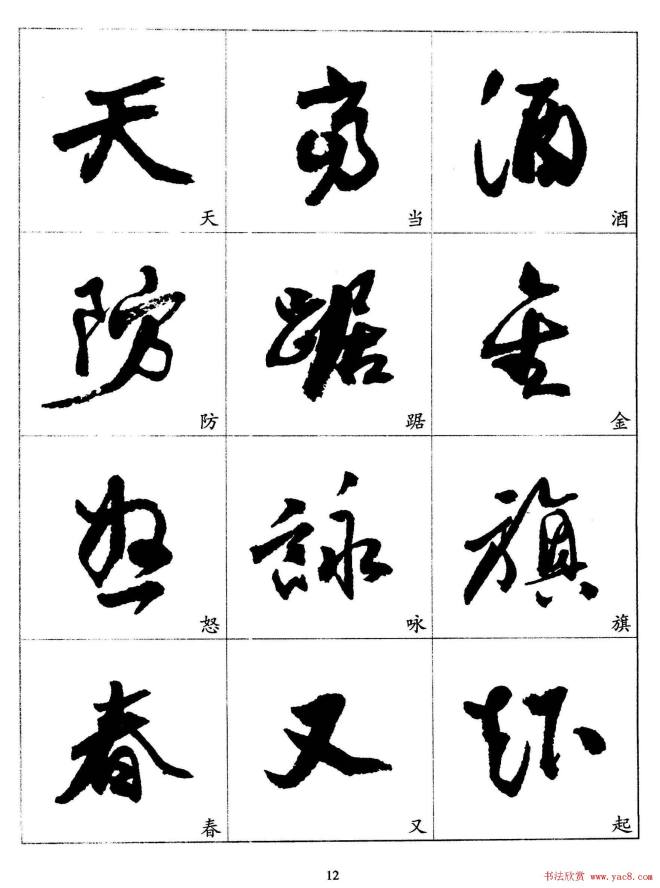 天 当 酒
天 当 酒
防 踞 金
防 踞 金
怒 詠 旗
怒 咏 旗
春 又 起
春 又 起
12
书法欣赏 www.yac8.com